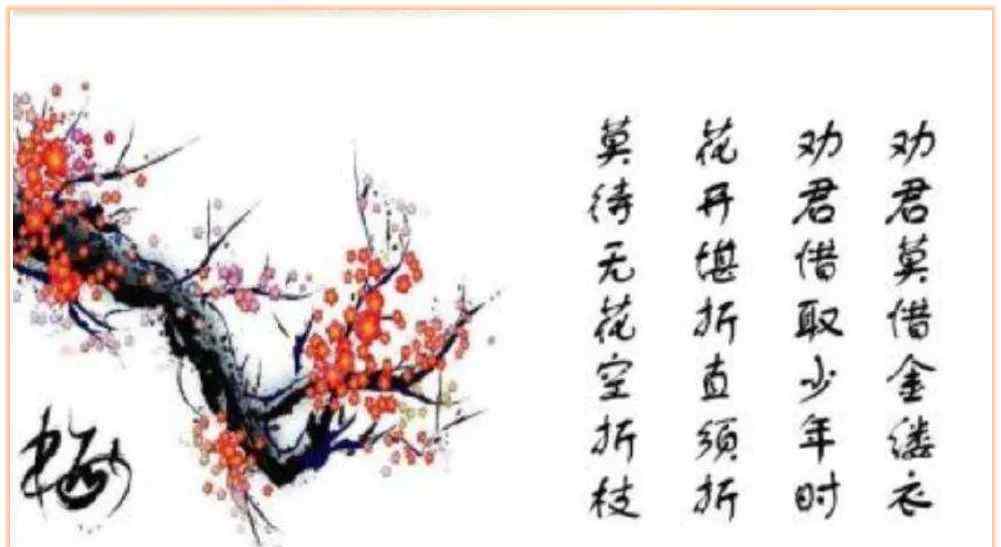 劝君莫借金缕衣
劝君借取少年时
花开堪折直须折
莫待无花空折枝
梅